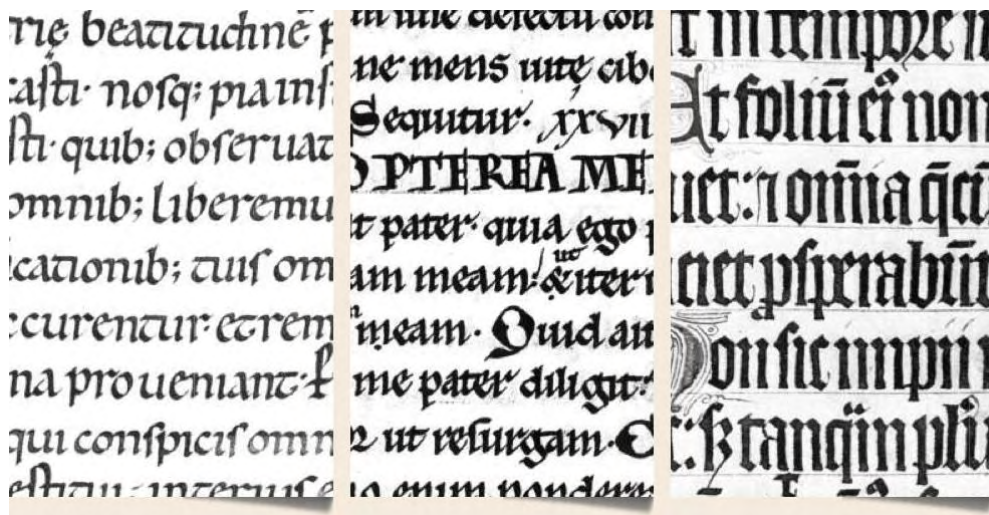 rię beatitudinē p
casti· nosq; piainſ
ſti· quib; obſeruat
omnib; liberemu
cationib; tuiſ om
curentur· et rem
na proueniant·
qui conſpiciſ omn
ne mens uitę cibo
Sequitur· xxvii
OPTEREA ME
t pater· quia ego
am meam· ut & iter
meam· Quid au
me pater diligit·
ut reſurgam· E
o enim ponderer
t in tempore
Et foliū eī non
uet: ⁊ omīa q̄cū
ciet pſperabūt
Non ſic impii
tanq̄m pluu